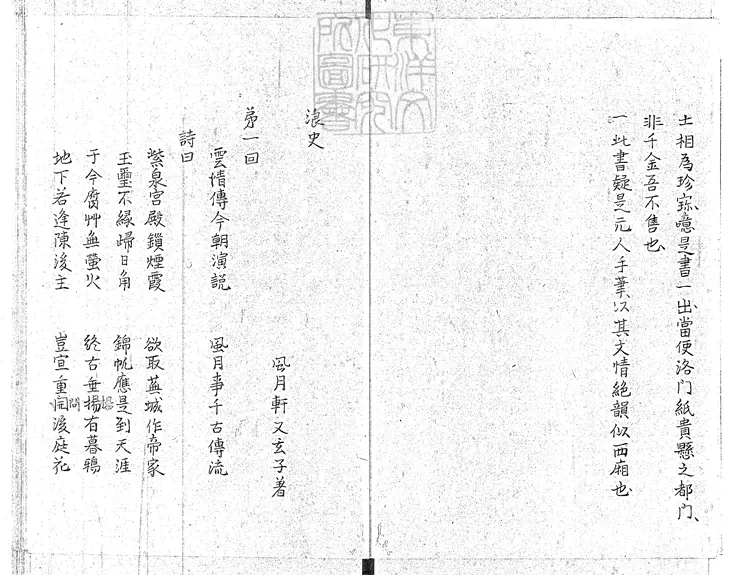 土相為珍寀噫是書一出當使洛門紙貴懸之都門、
非千金吾不售也
一此書疑是元人手葦以其文情絕韻似西廂也
浪史
風月軒又玄子著
第一回
雲情傳今朝演説 風月事千古傳流
詩曰
紫泉宮殿鎖煙霞 欲取蕪城作帝家
玉璽不緣歸日角 錦帆應是到天涯
于今腐艸無螢火 終古垂揚有暮鴉
楊
地下若逢陳後主 豈宜重問後庭花
問
東洋文化研究所圖書